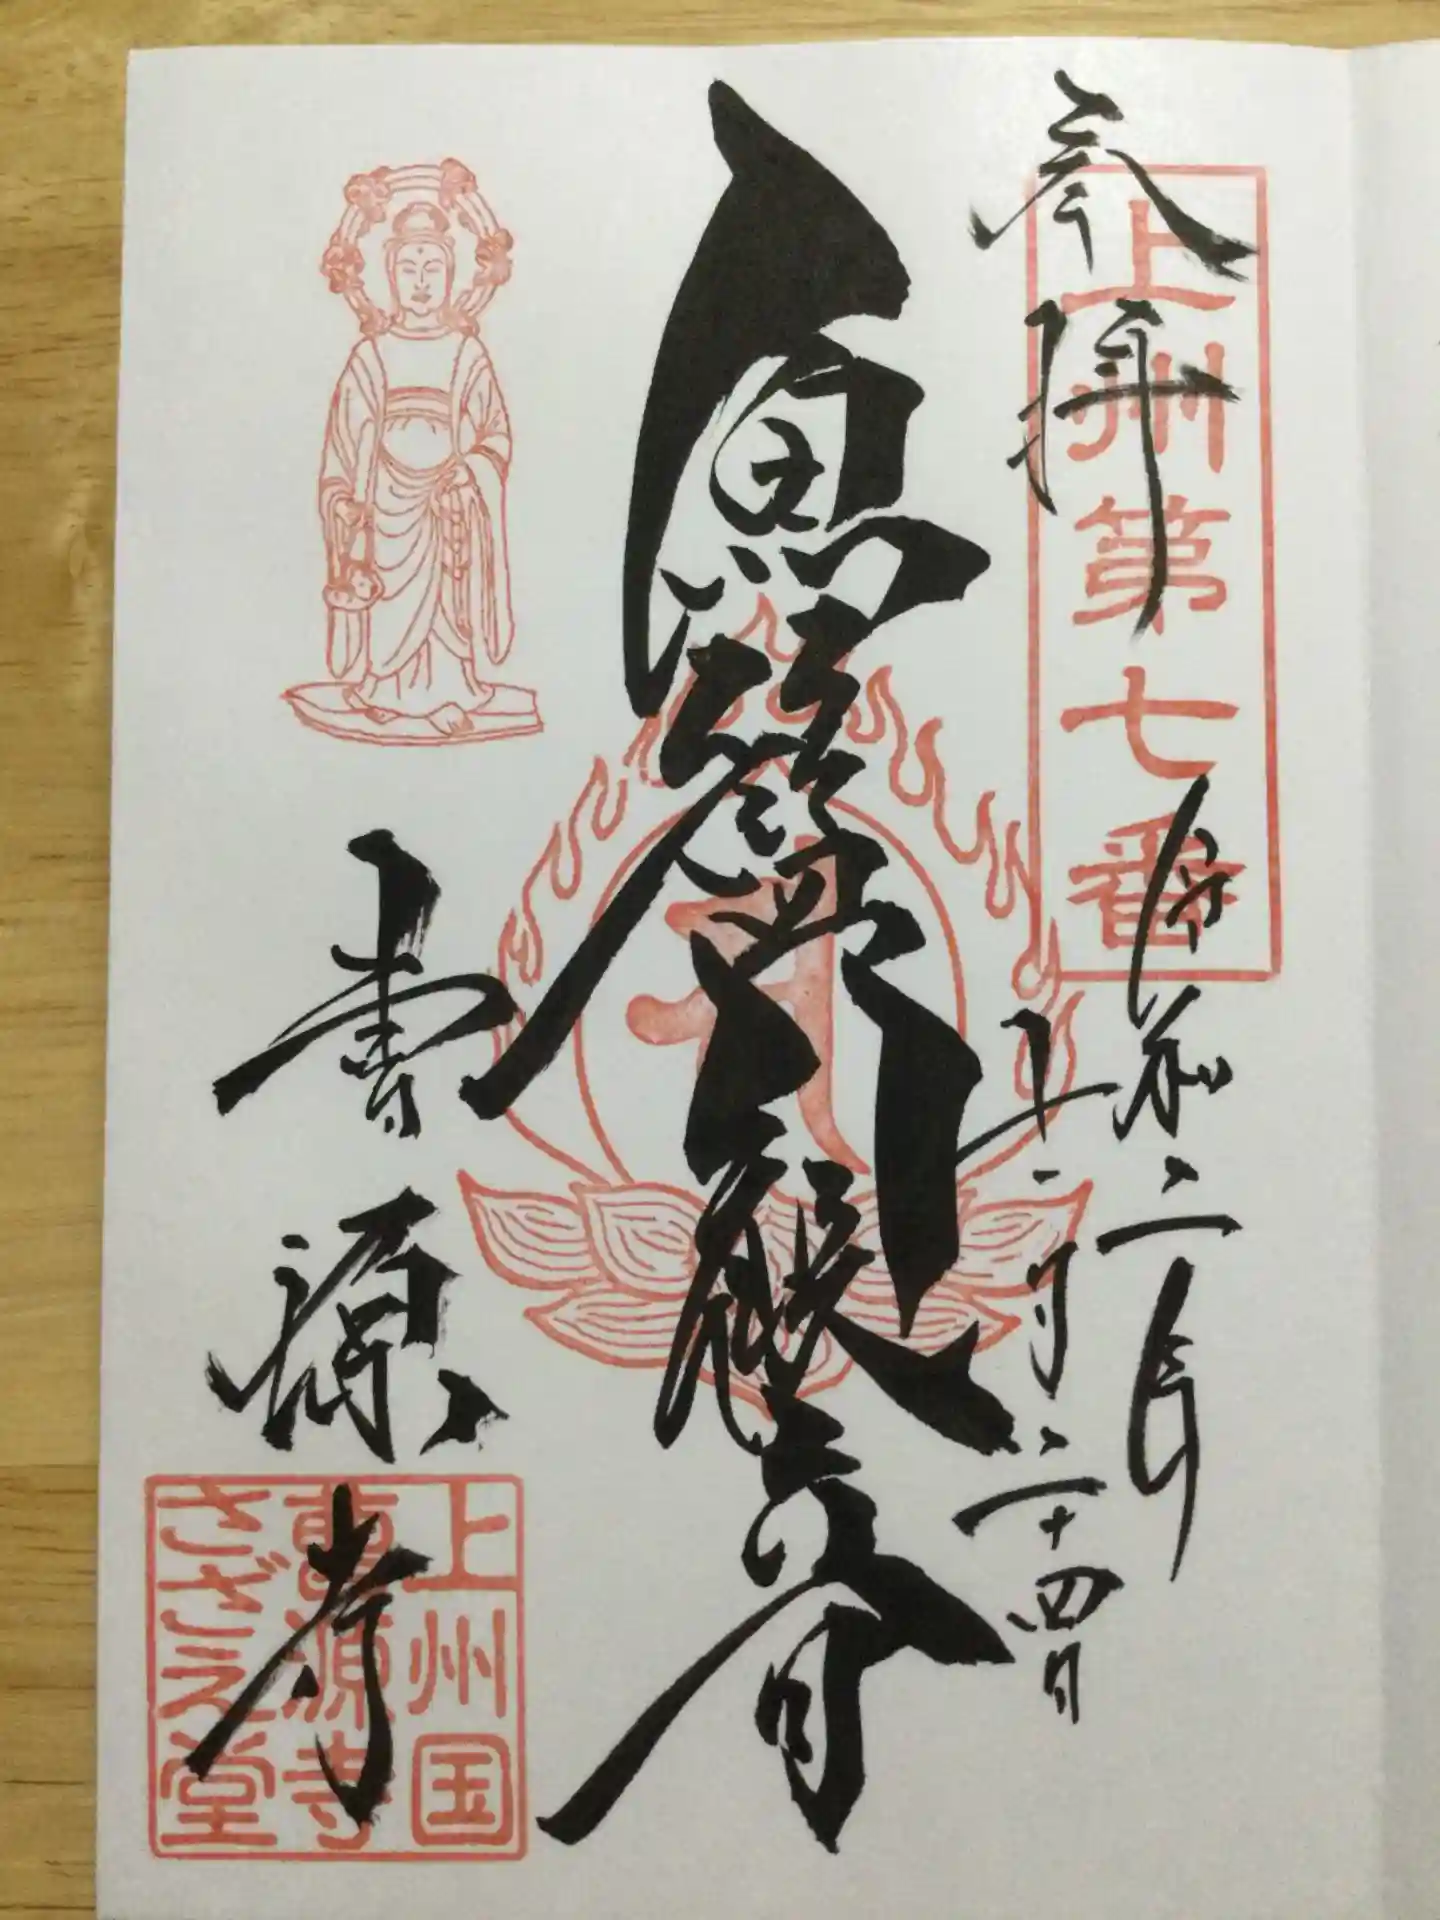 奉拝
上州第七番
令和二年
十一月二十四日
魚籃観世音
曹源寺
上州国
曹源寺
さざえ堂